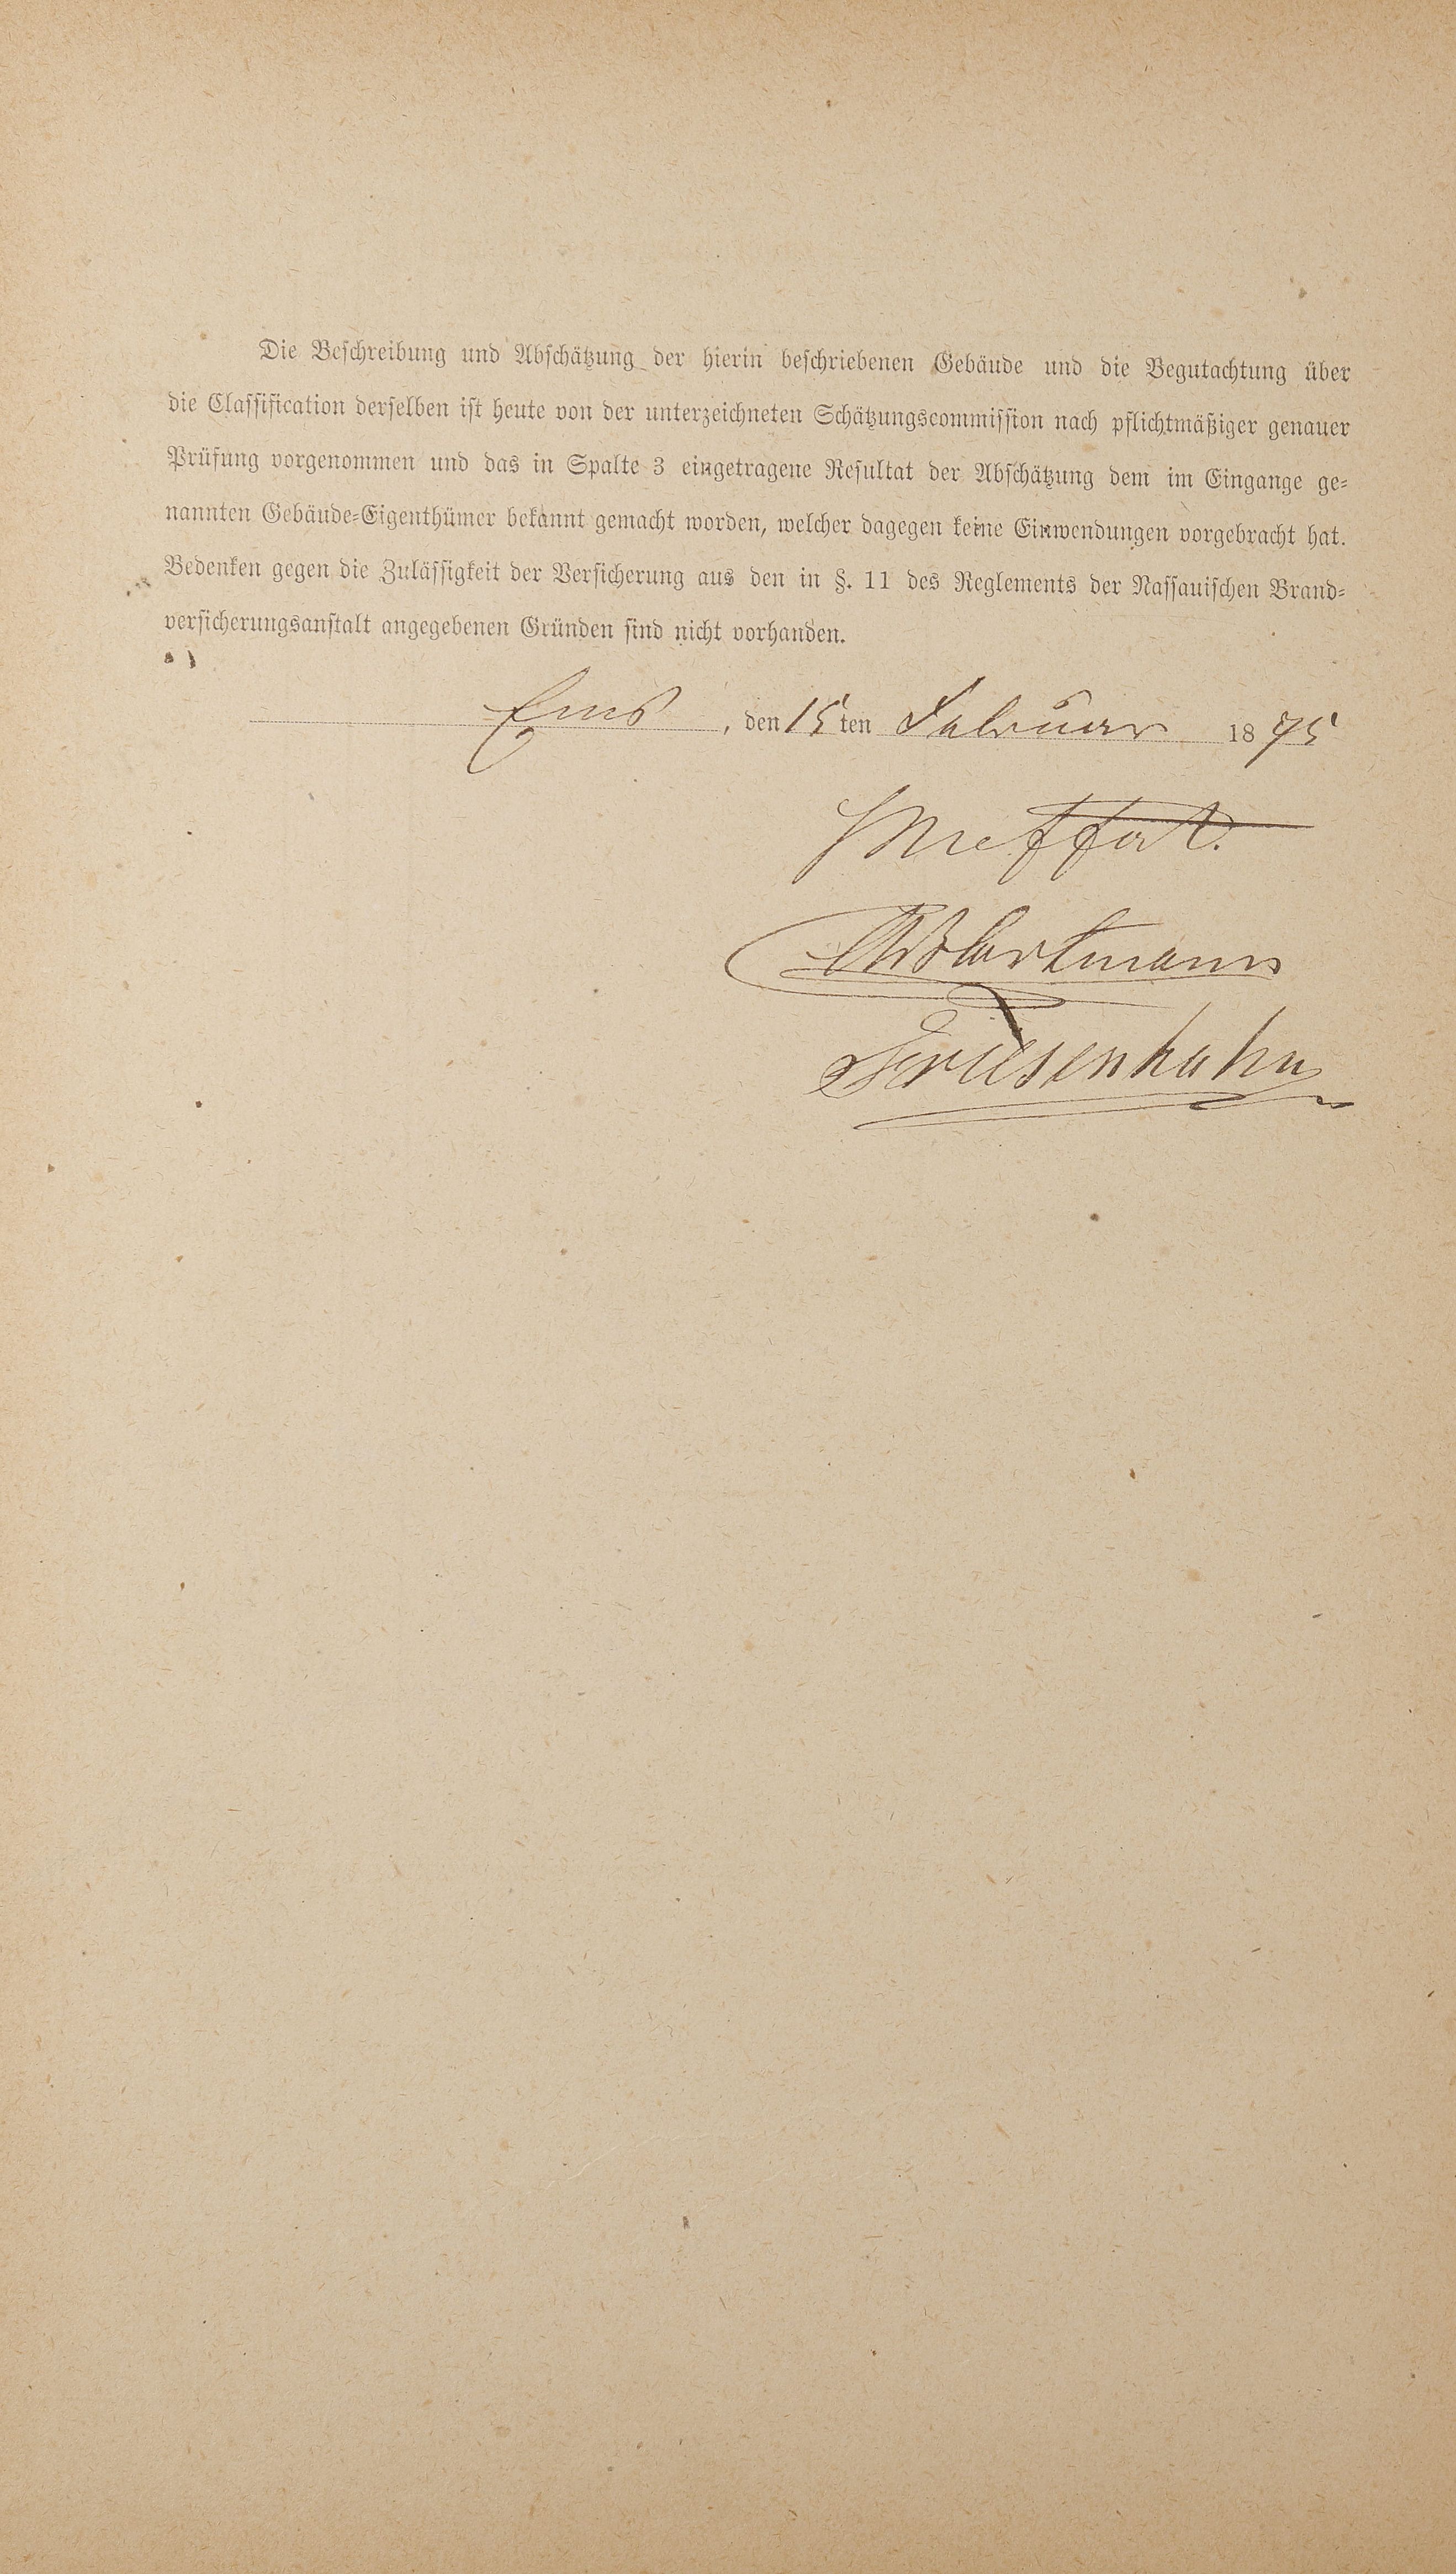 Die Beschreibung und Abschätzung der hierin beschriebenen Gebäude und die Begutachtung über
die Classification derselben ist heute von der unterzeichneten Schätzungscommission nach pflichtmäßiger genauer
Prüfung vorgenommen und das in Spalte 3 eingetragene Resultat der Abschätzung dem im Eingange ge=
nannten Gebäude=Eigenthümer bekannt gemacht worden, welcher dagegen keine Einwendungen vorgebracht hat.
Bedenken gegen die Zulässigkeit der Versicherung aus den in §. 11 des Reglements der Nassauischen Brand=
versicherungsanstalt angegebenen Gründen sind nicht vorhanden.
Ems, den 15ten Februar 1875
Friesenhahn